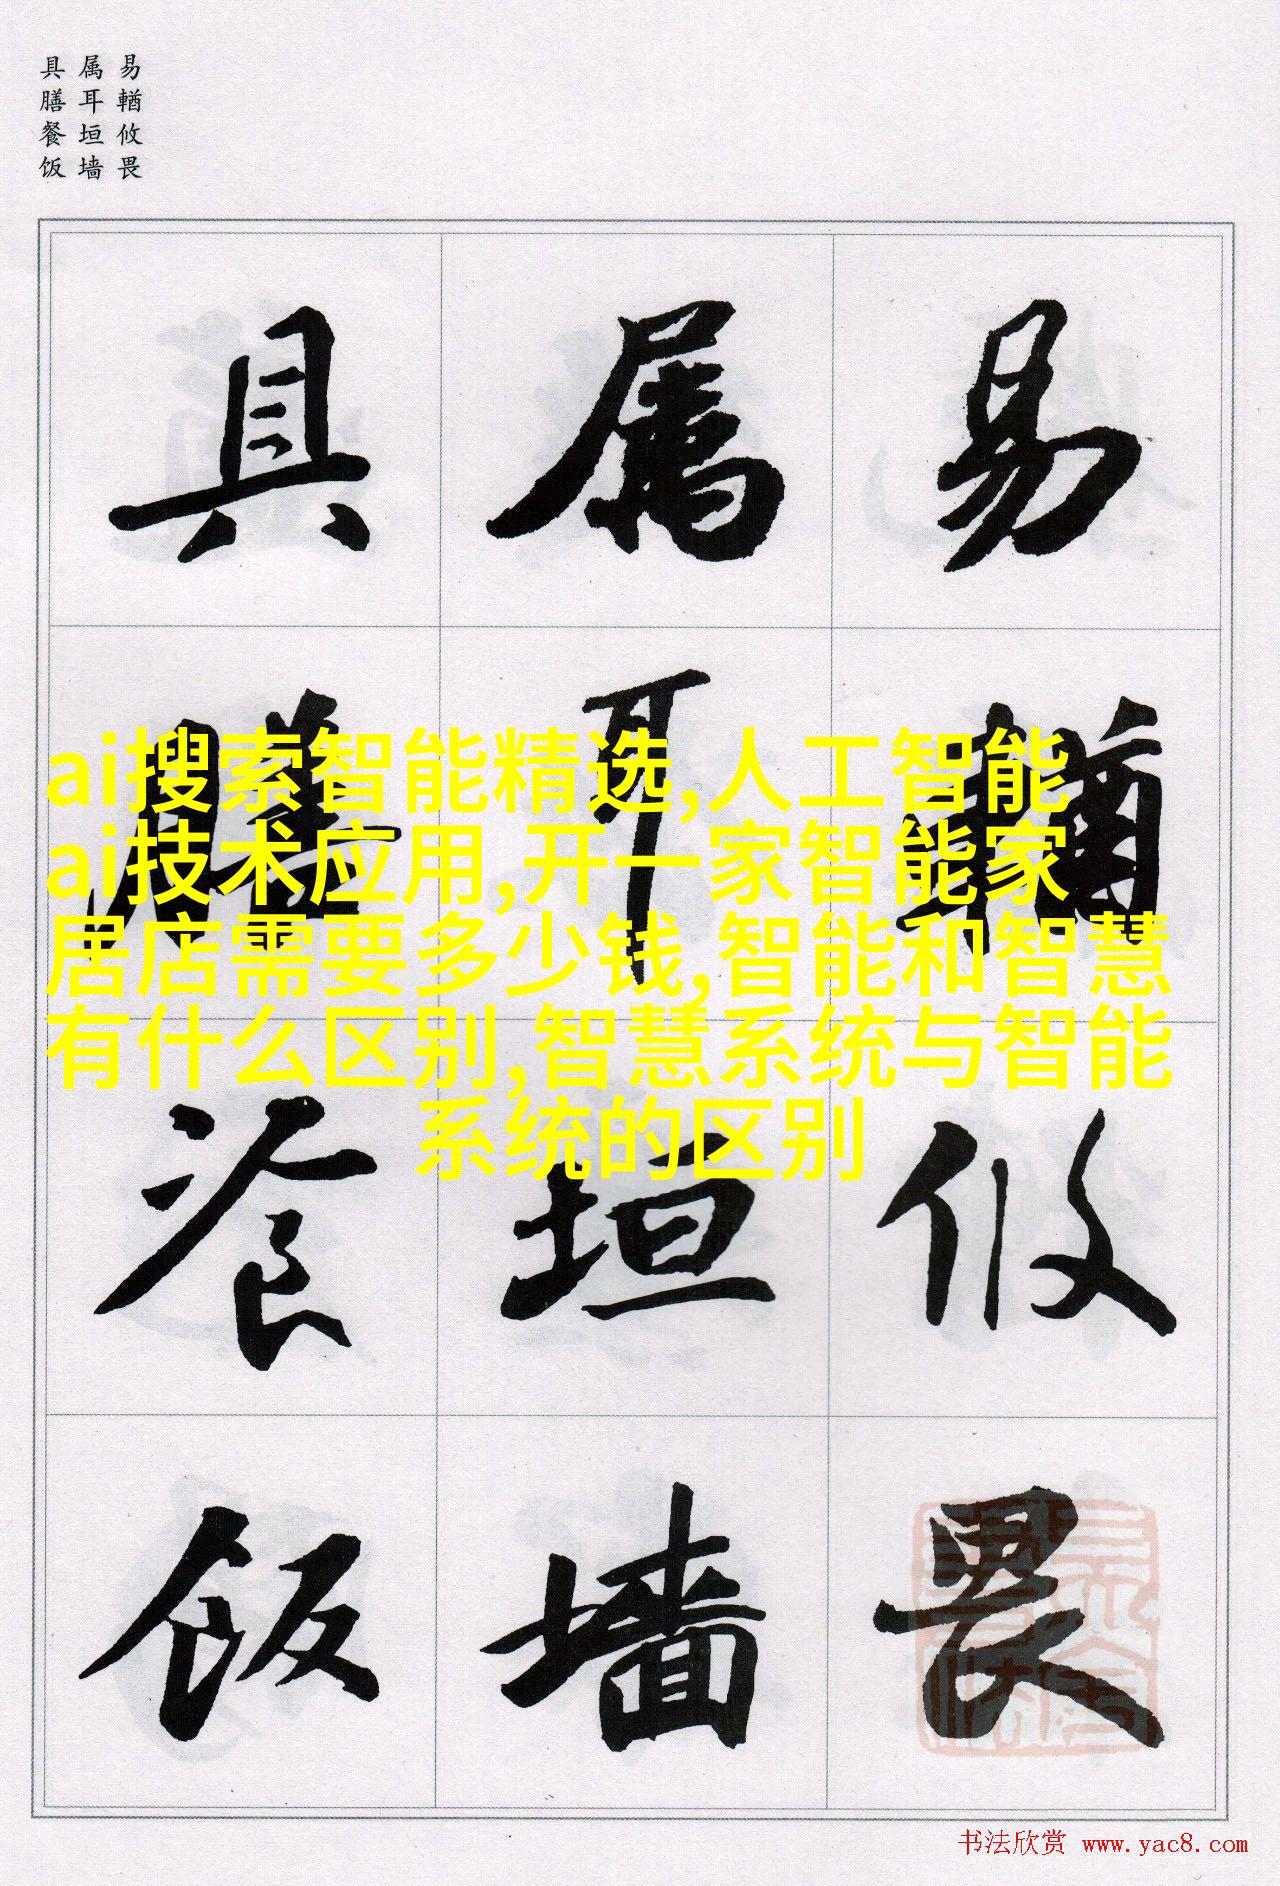 易輶攸畏
属耳垣墙
具膳餐饭
易
輶
攸
畏
属
耳
垣
墙
具
膳
餐
饭
ai搜索智能精选,人工智能
ai技术应用,开一家智能家
居店需要多少钱,智能和智慧
有什么区别,智慧系统与智能
系统的区别
书法欣赏 www.yac8.com